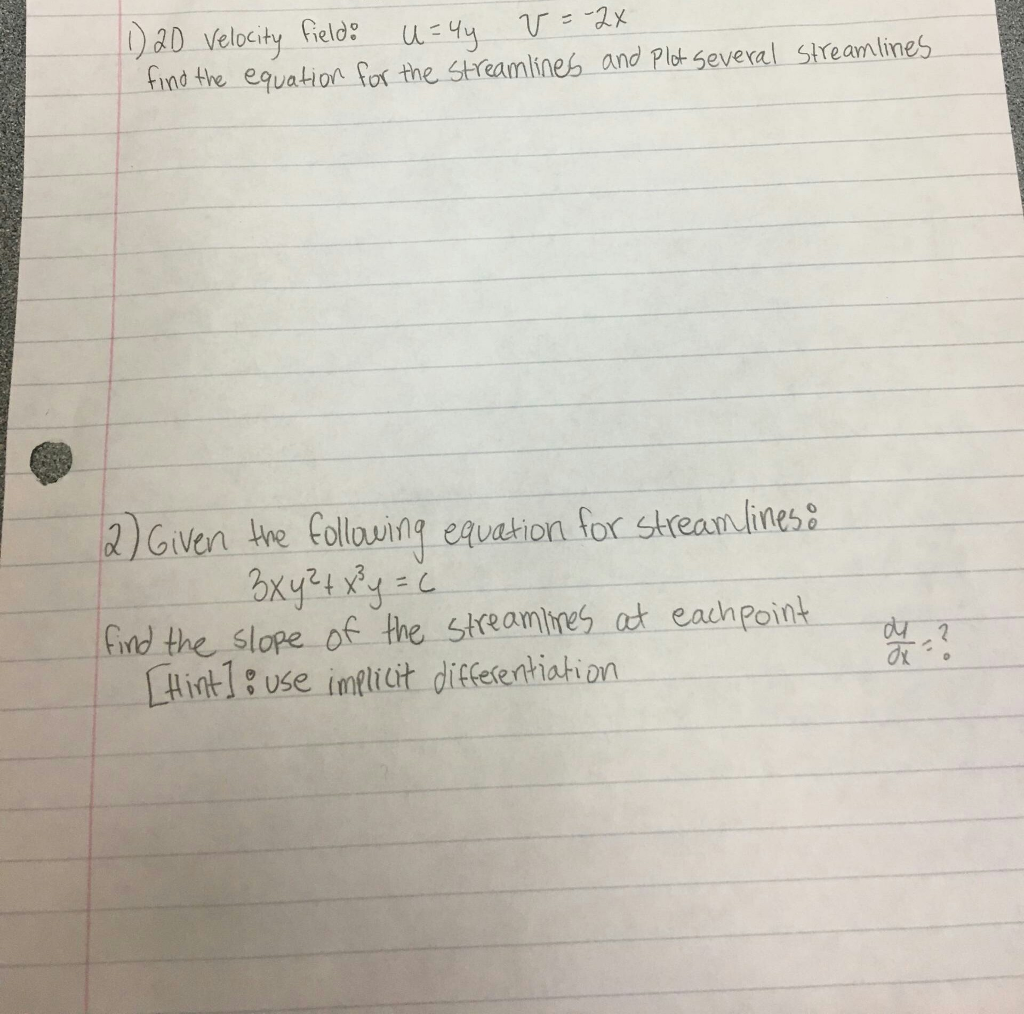 1) 2D Velocity field: u = 4y v = -2x
find the equation for the streamlines and Plot several streamlines
2) Given the following equation for streamlines:
3xy² + x³y = c
find the slope of the streamlines at each point
[Hint]: use implicit differentiation
dy/dx = ?